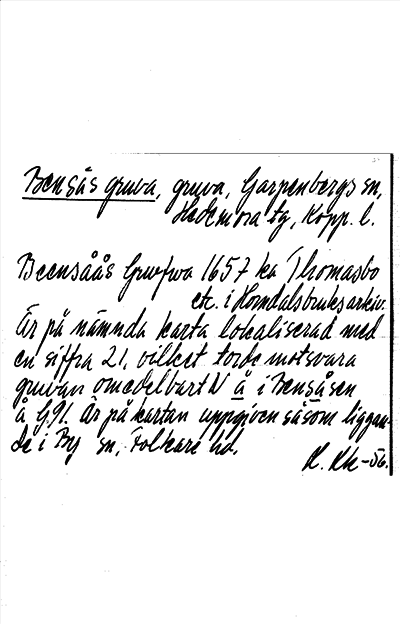 Bensås gruva, gruva, Garpenbergs sn,
Hedemora tg, Kopp. l.
Beensåås Grufwa 1657 ka Thomasbo
etc. i Horndalsbruks arkiv.
Är på nämnda karta lokaliserad med
en siffra 21, vilket torde motsvara
gruvan omedelbart N å i Bensåsen
å G91. Är på kartan uppgiven såsom liggan-
de i By sn, Folkare hd.
-56.